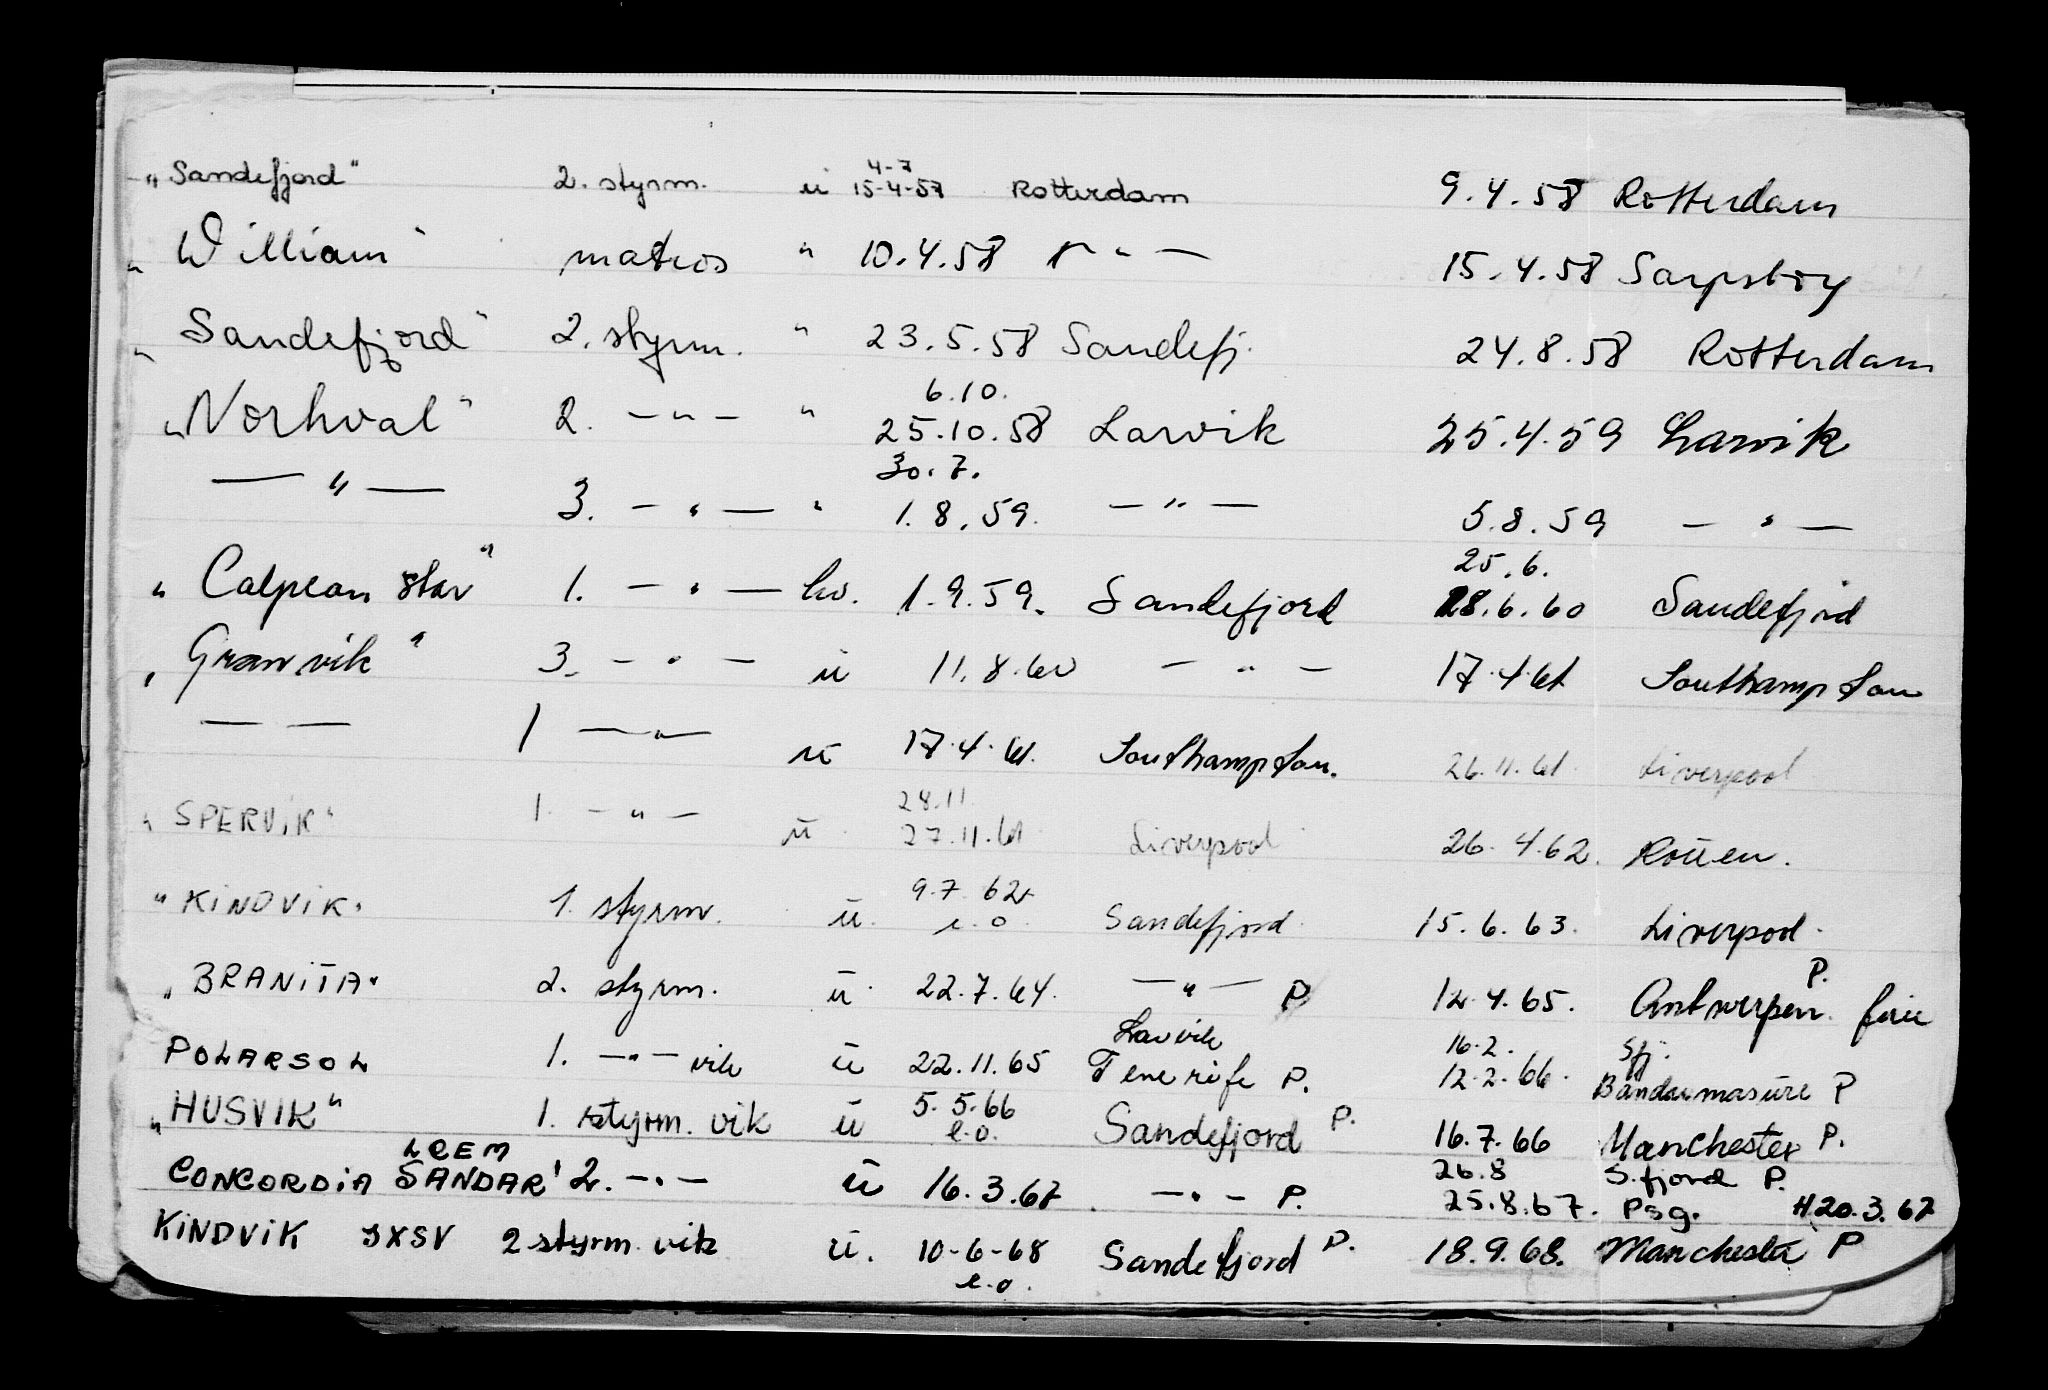 4-7
„Sandefjord" 2. styrm. u 15-4-57 Rotterdam 9.4.58 Rotterdam
„William" matros " 10.4.58 — " — 15.4.58 Sarpsborg
„Sandefjord" 2. styrm. " 23.5.58 Sandefj. 24.8.58 Rotterdam
6.10.
„Norhval" 2. — " — " 25.10.58 Larvik 25.4.59 Larvik
30.7.
— " — 3. — " — " 1.8.59. — " — 5.8.59 — " —
25.6.
„Calpean Star" 1. — " — hv. 1.9.59. Sandefjord 28.6.60 Sandefjord
„Granvik" 3. — " — u 11.8.60 — " — 17.4.61 Southampton
— — 1 — " — u 17.4.61. Southampton. 26.11.61. Liverpool
28.11
„SPERViK" 1. — " — u 27.11.61 Liverpool 26.4.62. Rouen.
9.7.62
"KiNDViK" 1. styrm. u. e.o Sandefjord 15.6.63. Liverpool.
P.
„BRANiTA" 2. styrm. u 22.7.64. — " — P 12.4.65. Antwerpen ferie
Larvik 16.2. Sfj.
POLARSOL 1. — " — vik u 22.11.65 Tenerife P. 12.2.66. P
5.5.66
„HUSVIK" 1. styrm. vik u e.o. Sandefjord P. 16.7.66 Manchester P.
LCEM 26.8 S.fjord P.
CONCORDiA SANDAR' 2. — " — u 16.3.67 — " — P. 25.8.67. Psg. H20.3.67
KiNDViK JXSV 2 styrm. vik u. 10-6-68 Sandefjord P. 18.9.68. Manchester P
e.o.